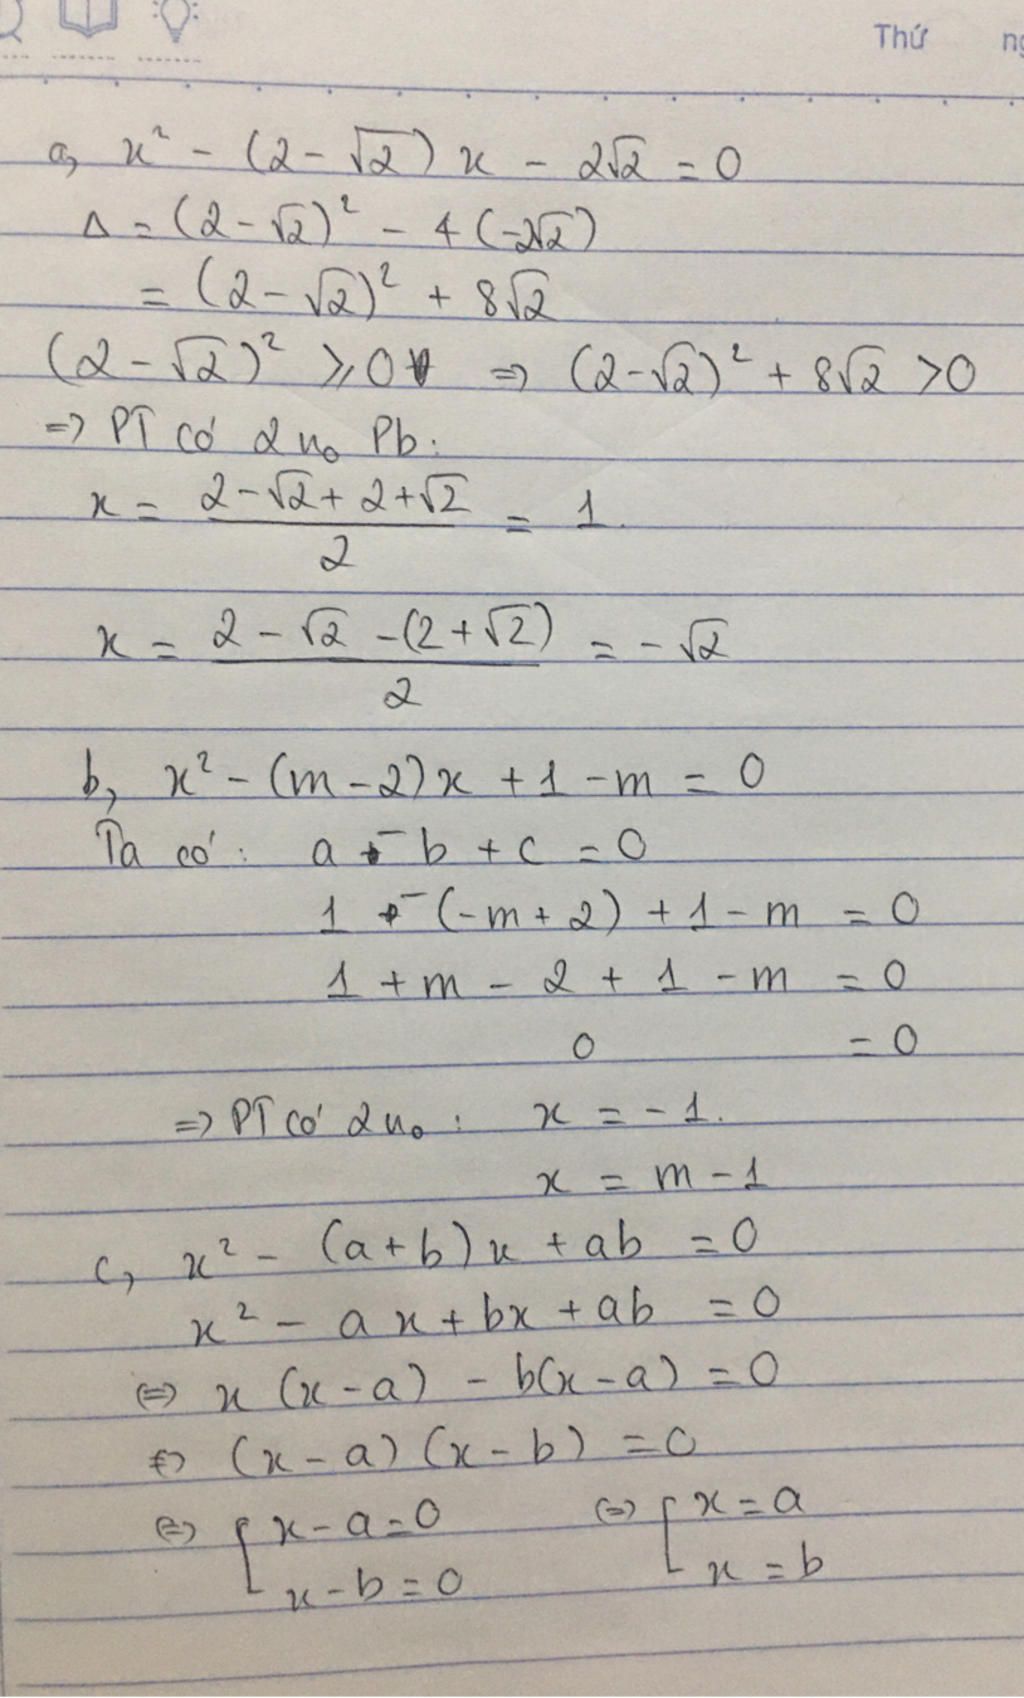 Thứ
a, x² - (2 - √2) x - 2√2 = 0
Δ = (2 - √2)² - 4 (-2√2)
= (2 - √2)² + 8√2
(2 - √2)² ⩾ 0 ⇒ (2 - √2)² + 8√2 > 0
⇒ PT có 2 n₀ Pb :
x = (2 - √2 + 2 + √2) / 2 = 1.
x = (2 - √2 - (2 + √2)) / 2 = - √2
b, x² - (m - 2) x + 1 - m = 0
Ta có : a - b + c = 0
1 - (-m + 2) + 1 - m = 0
1 + m - 2 + 1 - m = 0
0 = 0
⇒ PT có 2 n₀ : x = - 1.
x = m - 1
c, x² - (a + b) x + ab = 0
x² - ax + bx + ab = 0
⇔ x (x - a) - b(x - a) = 0
⇔ (x - a) (x - b) = 0
⇔ [ x - a = 0 ⇔ [ x = a
x - b = 0 x = b